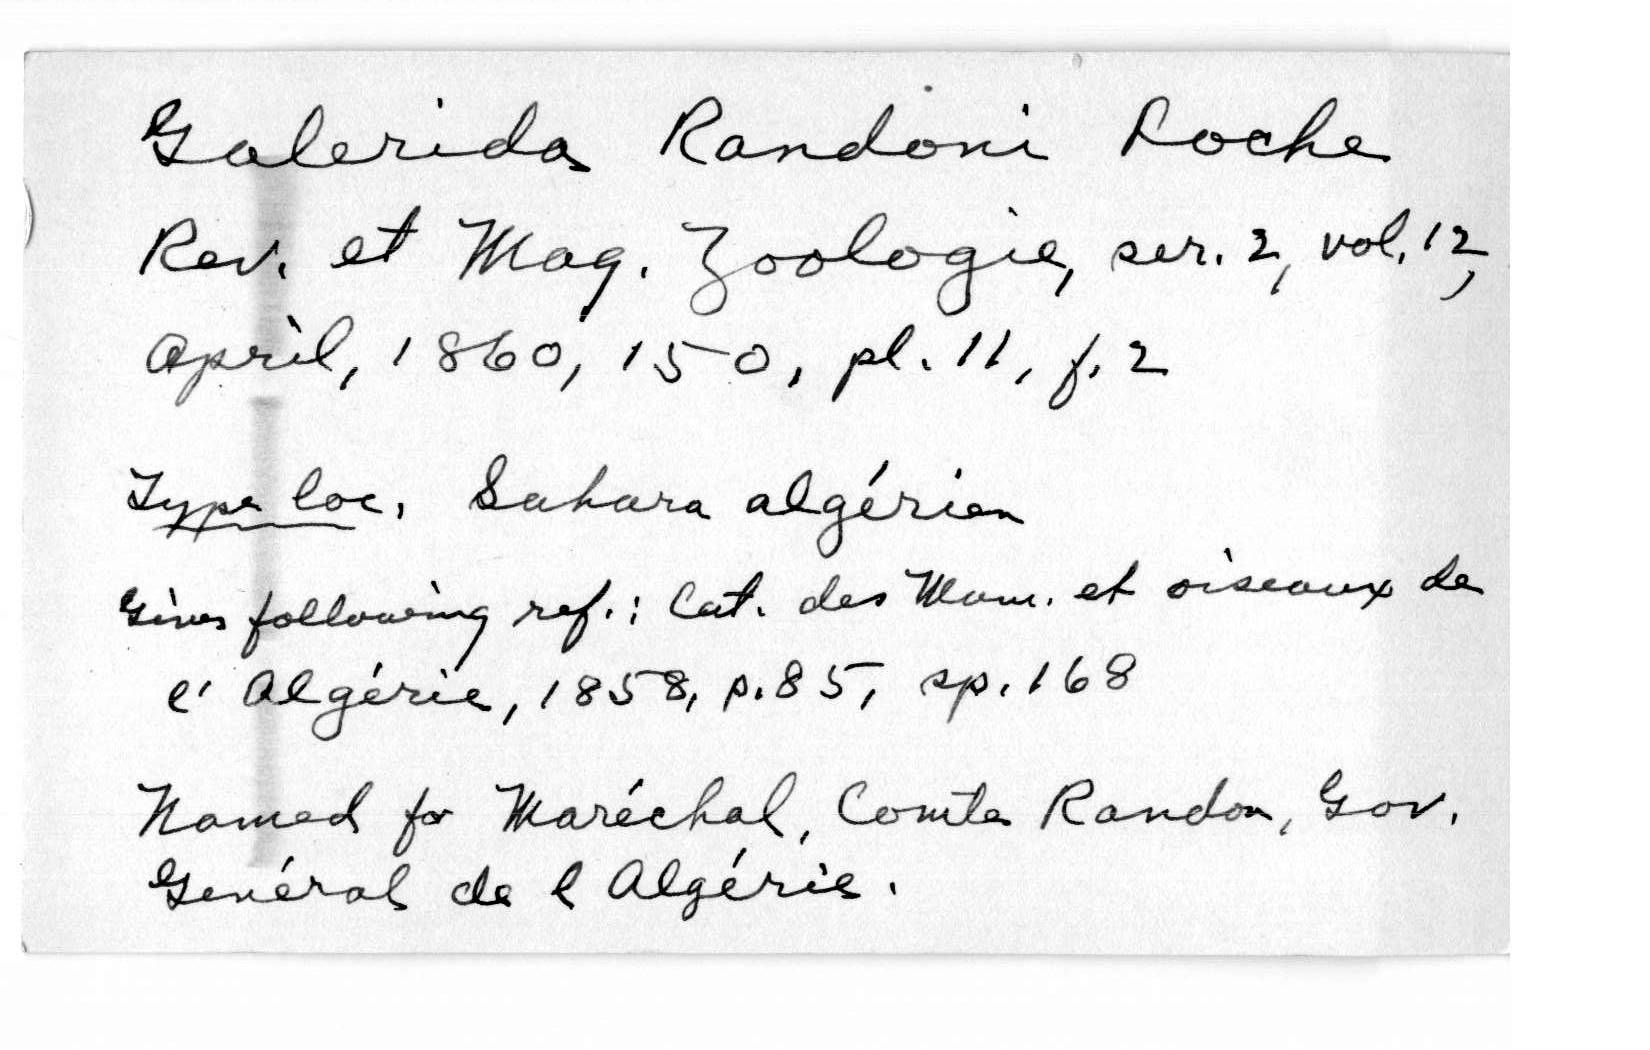 Galerida Randoni Loche
Rev. et Mag. Zoologie, ser. 2, vol. 12,
April, 1860, 150, pl. 11, f. 2
Type loc. Sahara algérien
Gives following ref.: Cat. des Mam. et oiseaux de
l' Algérie, 1858, p. 85, sp. 168
Named for Maréchal, Comte Randon, Gov.
Général de l Algérie.